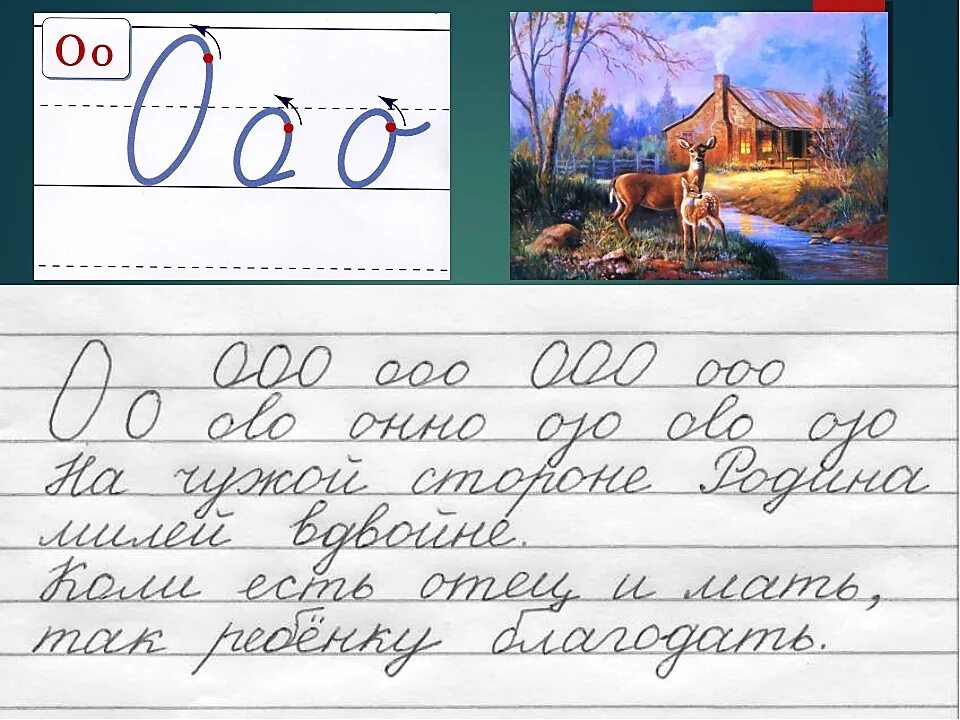 Оо
О о о
ООО ооо ООО ооо
Оо ово онно озо ово озо
На чужой стороне Родина
милей вдвойне.
Коли есть отец и мать,
так ребёнку благодать.